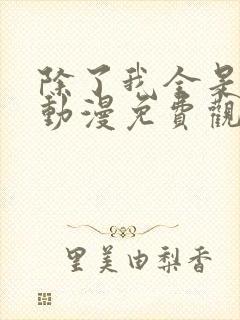 除了我全是
動漫免費觀
里美由梨香